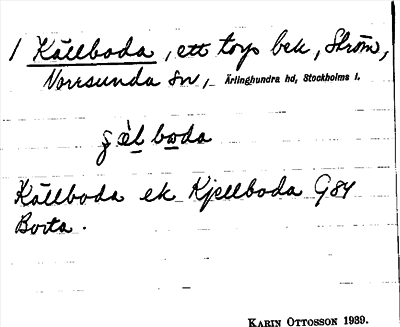 1 Källboda, ett torp bek, Ström,
Norrsunda sn, Ärlinghundra hd, Stockholms l.
boda
Källboda ek Kjellboda G84
Borta.
KARIN OTTOSSON 1939.